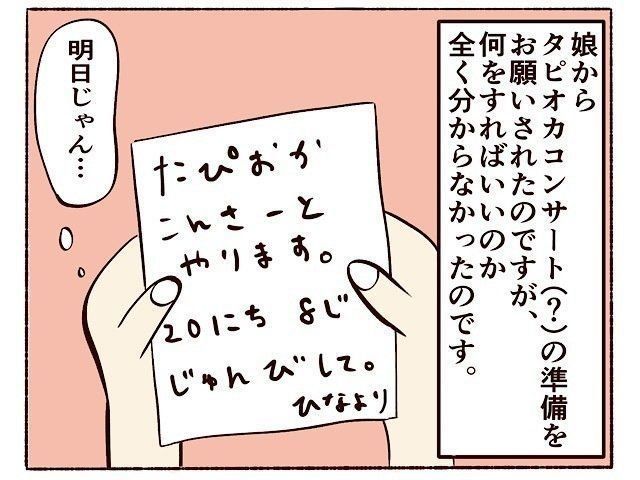 娘から
タピオカコンサート(？)の準備を
お願いされたのですが、
何をすればいいのか
全く分からなかったのです。
たぴおか
こんさーと
やります。
20にち 8じ
じゅんびして。
ひなより
明日じゃん…